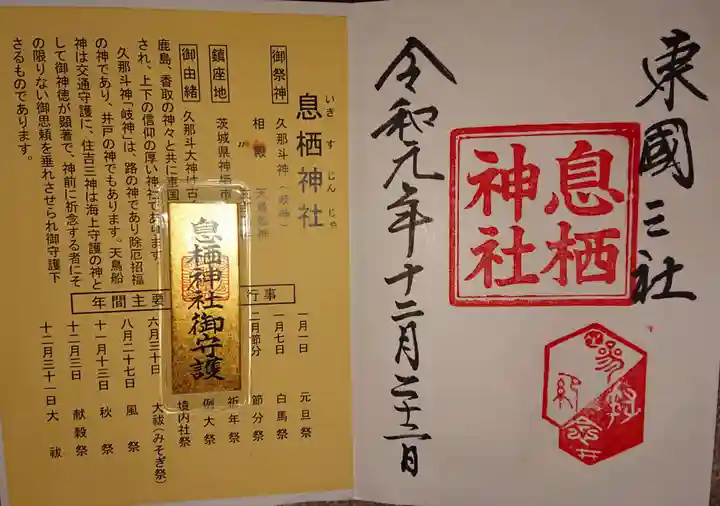 東國三社
息栖
神社
参拝
記念
令和元年十二月二十二日
いきすじんじゃ
息栖神社
御祭神 久那斗神（岐神）
相殿 天鳥船神
鎮座地 茨城県神栖市
御由緒 久那斗大神は古
鹿島、香取の神々と共に東国
され、上下の信仰の厚い神社であります
久那斗神「岐神」は、路の神であり除厄招福
の神であり、井戸の神でもあります。天鳥船
神は交通守護に、住吉三神は海上守護の神と
して御神徳が顕著で、神前に祈念する者にそ
の限りない御恩頼を垂れさせられ御守護下
さるものであります。
息栖神社御守護
年間主要行事
一月一日 元旦祭
一月七日 白馬祭
二月節分 節分祭
祈年祭
例大祭
境内社祭
六月三十日 大祓（みそぎ祭）
八月二十七日 風祭
十一月十三日 秋祭
十二月三日 献穀祭
十二月三十一日 大祓